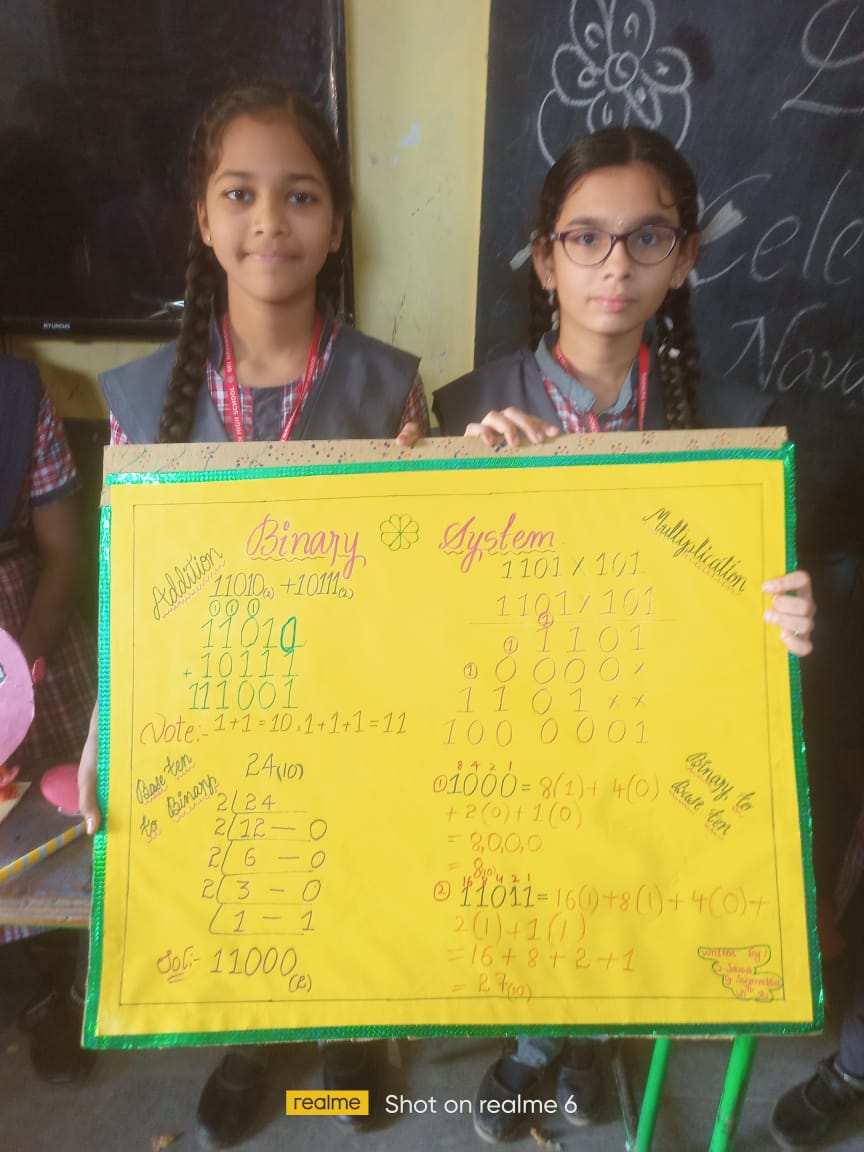 HYUNDAI
SRI
HIGH SCHOOL
Cele
Nava
Binary System
Addition
11010(2) +10111(2)
1 1 1
11010
+ 10111
111001
Note:- 1+1=10, 1+1+1=11
Multiplication
1101 × 101
1101 × 101
1
1 1101
1 0000×
1101××
1000001
Base ten
to Binary
24(10)
2 24
2 12 — 0
2 6 — 0
2 3 — 0
1 — 1
Sol:- 11000(2)
Binary to
Base ten
8 4 2 1
① 1000 = 8(1) + 4(0)
+ 2(0) + 1(0)
= 8,0,0,0
= 8(10)
16 8 4 2 1
② 11011 = 16(1)+8(1)+4(0)+
2(1)+1(1)
= 16+8+2+1
= 27(10)
written by:
realme Shot on realme 6